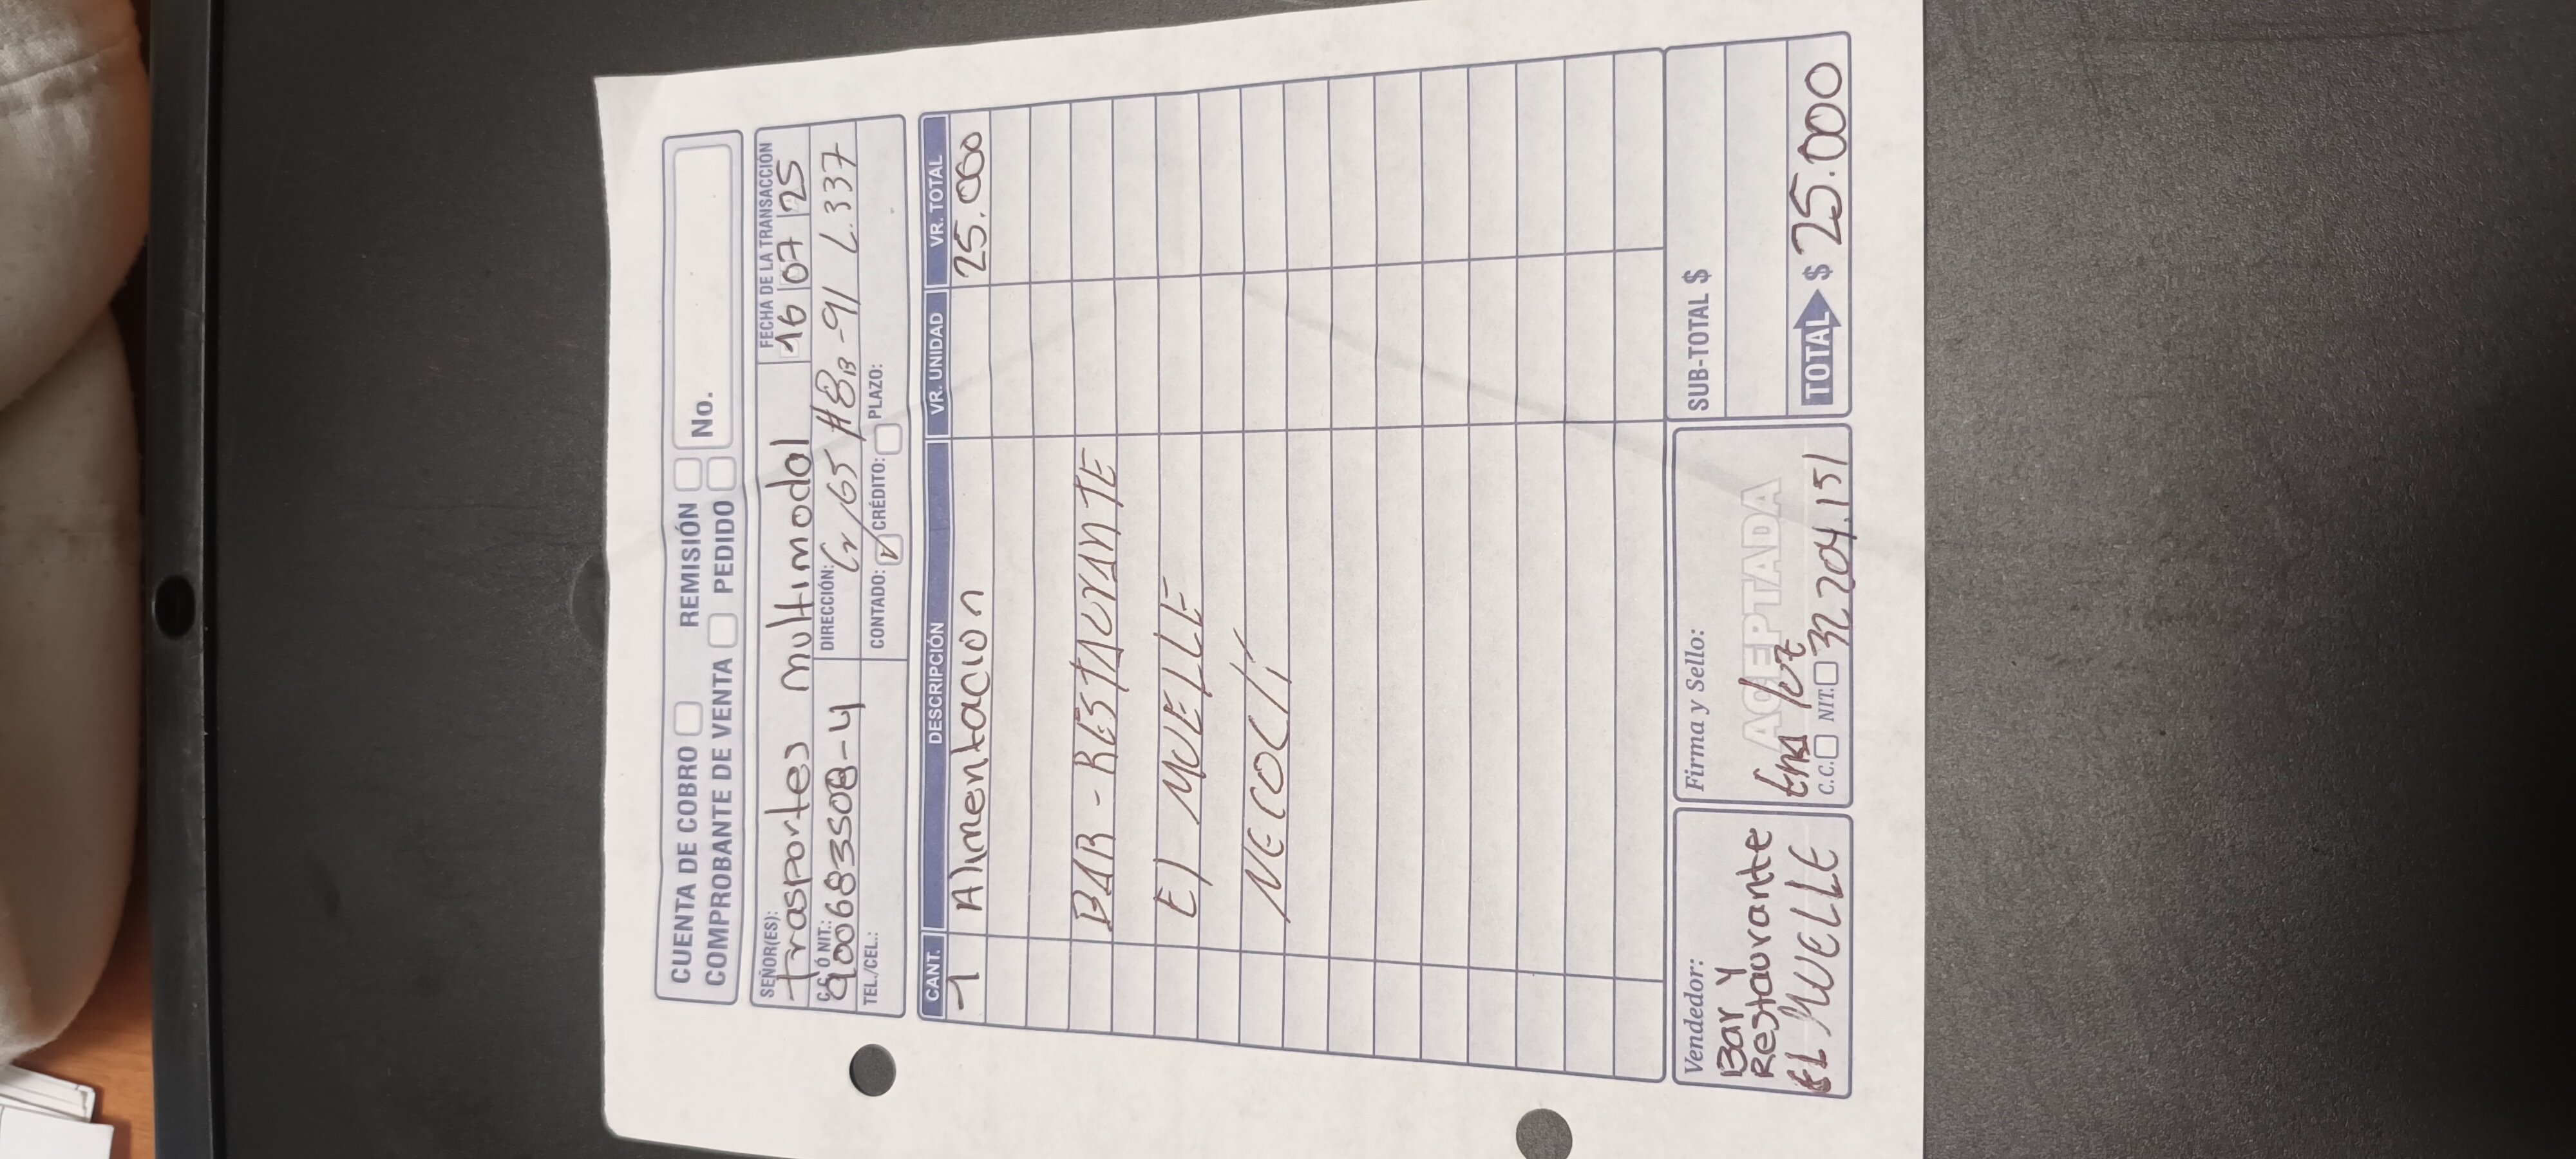 CUENTA DE COBRO REMISIÓN
COMPROBANTE DE VENTA PEDIDO No.
SEÑOR(ES): FECHA DE LA TRANSACCIÓN
trasportes multimodal 16 07 25
C.C. Ó NIT.: 900683508-4 DIRECCIÓN: Cr 65 #8B-91 L.337
TEL./CEL.: CONTADO: ✓ CRÉDITO: PLAZO:
CANT. DESCRIPCIÓN VR. UNIDAD VR. TOTAL
1 Alimentacion 25.000
BAR - RESTAURANTE
El MUELLE
NECOCLI
Vendedor:
Bar y
Restaurante
EL MUELLE
Firma y Sello:
ACEPTADA
luz
C.C. NIT. 32.204.151
SUB-TOTAL $
TOTAL $ 25.000